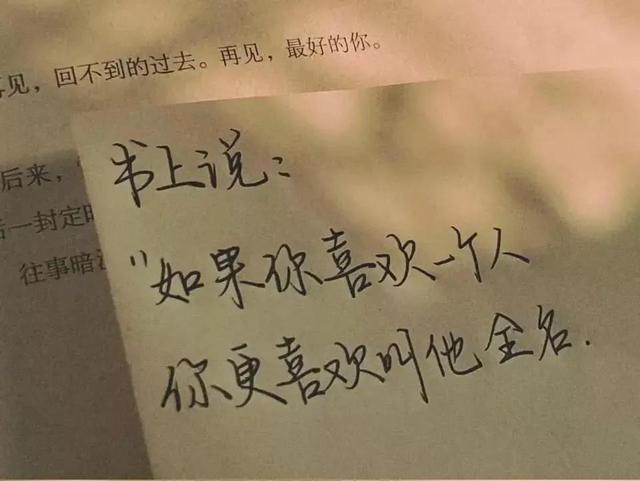 见，回不到的过去。再见，最好的你。
后来，
一封定时
往事暗
书上说：
"如果你喜欢一个人
你更喜欢叫他全名.